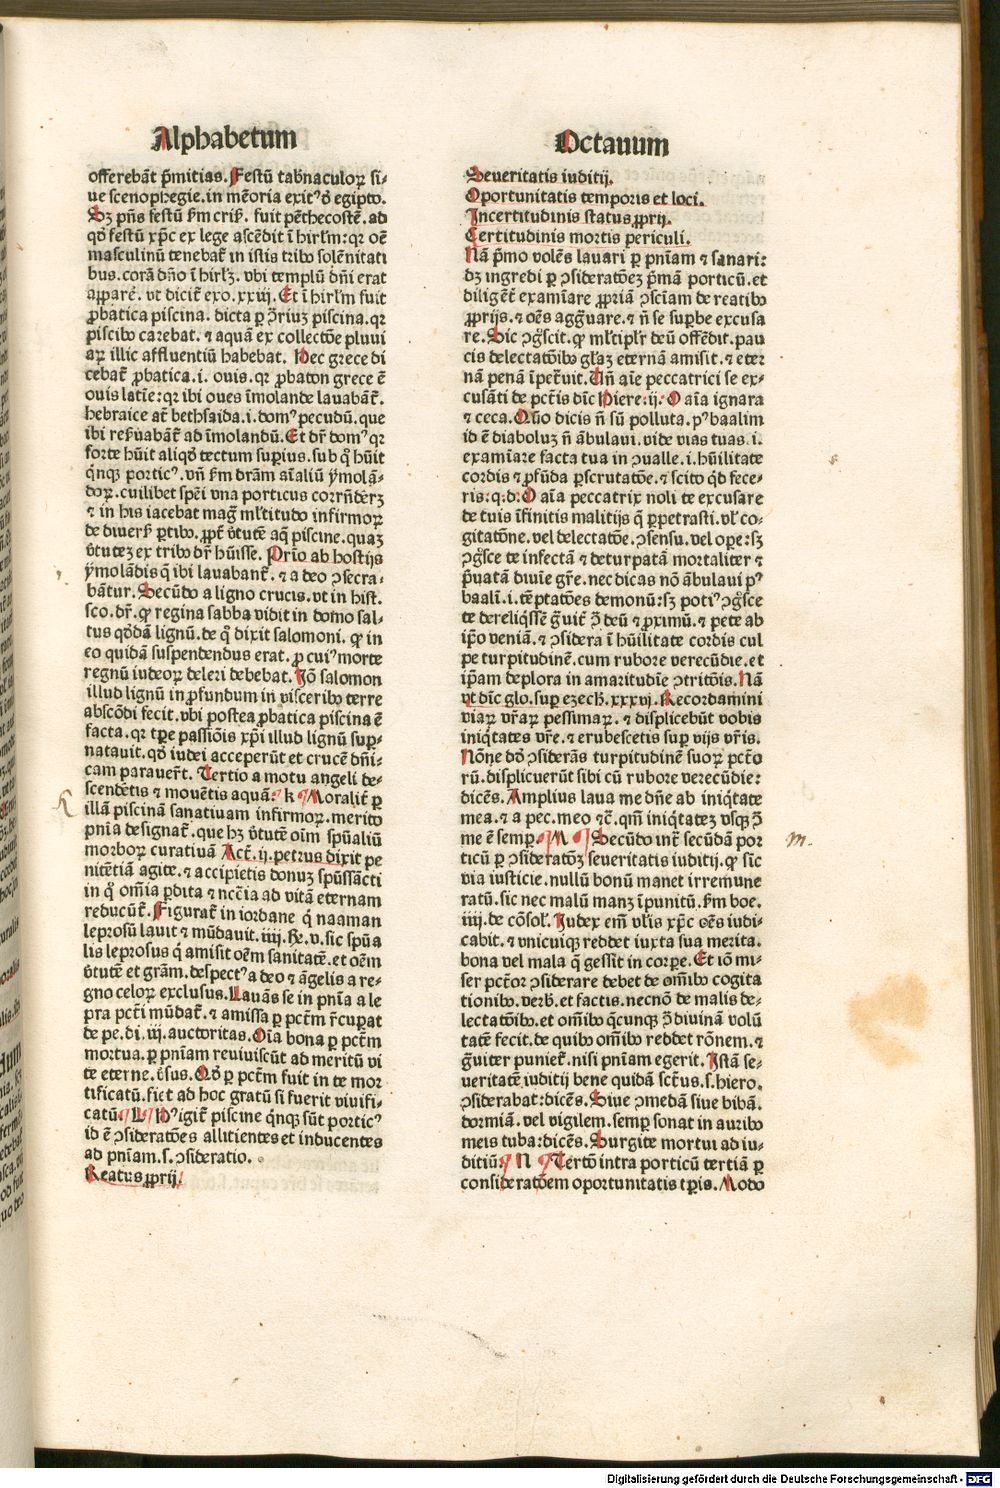 Alphabetum
offerebāt p̄mitias. Festū tabnaculoꝝ si-
ue scenophegie. in mēoria exitꝰ ð egipto.
Sꝫ pn̄s festū ẜm criſ. fuit pēthecostē. ad
qd̄ festū xp̄c ex lege ascēdit ī hirl̄m: qꝛ oē
masculinū tenebat̄ in istis tribꝰ solēnitati
bus. corā dn̄o ī hirlꝫ. vbi templū dn̄i erat
aꝑparē. vt dicit̄ exo. xxiij. Et ī hirl̄m fuit
ꝓbatica piscina. dicta ꝑ ɔ̄riuꝫ piscina. qꝛ
piscibꝰ carebat. ⁊ aquā ex collectōe pluui
aꝝ illic affluentiū habebat. Hec grece di
cebat̄ ꝓbatica. i. ouis. qꝛ ꝓbaton grece ē
ouis latīe: qꝛ ibi oues īmolande lauabāt̄.
hebraice at̄ bethsaida. i. domꝰ pecudū. que
ibi refuabāt̄ ad īmolandū. Et dr̄ domꝰ qꝛ
forte hūit aliqd̄ tectum supius. sub q̊ hūit
qn̄qꝫ porticꝰ. vn̄ ẜm drām aīaliū ymolā-
doꝝ. cuilibet spēi vna porticus corrn̄derꝫ
⁊ in his iacebat mag̊ ml̄titudo infirmoꝝ
de diuerſ ꝑtibꝰ. ꝓpt̄ v̄tutē aq̄ piscine. quaꝫ
v̄tuteꝫ ex tribꝰ dr̄ hūisse. Prīo ab hostijs
ymolādis q̄ ibi lauabant̄. ⁊ a deo ɔsecra-
bāntur. Secūdo a ligno crucis. vt in hist.
sco. dr̄. ꝙ regina sabba vidit in domo sal-
tus qd̄dā lignū. de q̊ dixit salomoni. ꝙ in
eo quidā suspendendus erat. ꝓ cuiꝰ morte
regnū iudeoꝝ deleri debebat. Iō salomon
illud lignū in ꝓfundum in visceribꝰ terre
abscōdi fecit. vbi postea ꝓbatica piscina ē
facta. qꝛ tp̄e passiōis xp̄i illud lignū sup-
natauit. qd̄ iudei acceperūt et crucē dn̄i-
cam parauer̄t. Tertio a motu angeli de-
scendētis ⁊ mouētis aquā: ¶ k ¶ Moralit̄ ꝑ
illā piscinā sanatiuam infirmoꝝ. merito
pnīa designat̄. que hꝫ v̄tutē oīm spūaliū
morboꝝ curatiuā Act̄. ij. petrus dixit pe
nitētiā agite. ⁊ accipietis donuꝫ spūssācti
in q̊ om̄ia ꝑdita ⁊ nccīa ad vitā eternam
reducūt̄. Figurat̄ in iordane q̊ naaman
leprosū lauit ⁊ mūdauit. iiij. Re. v. sic spūa
lis leprosus q̄ amisit oēm sanitatē. et oēm
v̄tutē et grām. despectꝰ a deo ⁊ āgelis a re-
gno celoꝝ exclusus. Lauās se in pnīa a le
pra pct̄i mūdat̄. ⁊ amissa ꝑ pct̄m r̄cuꝑat
de pe. di. iij. auctoritas. Oīa bona ꝑ pct̄m
mortua. ꝑ pnīam reuiuiscūt ad meritū vi
te eterne. v̄sus. Qd̄ ꝑ pct̄m fuit in te mor
tificatū. fiet ad hoc gratū si fuerit viuifi-
catū. ¶ L ¶ Hꝰ igit̄ piscine qn̄qꝫ sūt porticꝰ
id ē ɔsideratōes allitientes et inducentes
ad pnīam. s. ɔsideratio.
Reatus ꝓprij.
k
Octauum
Seueritatis iuditij.
Oportunitatis temporis et loci.
Incertitudinis status ꝓprij.
Certitudinis mortis periculi.
Nā p̄mo volēs lauari ꝑ pnīam ⁊ sanari:
dꝫ ingredi ꝑ ɔsideratōeꝫ p̄mā porticū. et
diligēt̄ examīare ꝓpriā ɔscīam de reatibꝰ
ꝓprijs. ⁊ oēs agg̊uare. ⁊ n̄ se suꝑbe excusa
re. Sic ɔg̊scit. ꝙ ml̄tipl̄r deū offēdit. pau
cis delectatōibꝰ gl̄aꝫ eternā amisit. ⁊ eter
nā penā īpet̄uit. Un̄ aīe peccatrici se ex-
cusāti de pct̄is dīc Hiere. ij. O aīa ignara
⁊ ceca. Quō dicis n̄ sū polluta. pꝰ baalim
id ē diaboluꝫ n̄ ābulaui. vide vias tuas. i.
examīare facta tua in ɔualle. i. hūilitate
cordis ⁊ ꝓfūda ꝑscrutatōe. ⁊ scito qd̄ fece-
ris: q. d. O aīa peccatrix noli te excusare
de tuis īfinitis malitijs q̄ ꝑpetrasti. vl̄ co-
gitatōne. vel delectatōe. ɔsensu. vel oꝑe: sꝫ
ɔg̊sce te infectā ⁊ deturpatā mortaliter ⁊
p̄uatā diuīe gr̄e. nec dicas nō ābulaui pꝰ
baalī. i. tēptatōes demonū: sꝫ potiꝰ ɔg̊sce
te dereliq̄ssē g̊uit̄ ɔ̄ deū ⁊ ꝓximū. ⁊ pete ab
ip̄o veniā. ⁊ ɔsidera ī hūilitate cordis cul
pe turpitudinē. cum rubore verecūdie. et
ip̄am deplora in amaritudīe ɔtritōis. Nā
vt dīc glo. suꝑ ezech. xxxvj. Recordamini
viaꝝ vr̄aꝝ pessimaꝝ. ⁊ displicebūt vobis
iniq̄tates vr̄e. ⁊ erubescetis suꝑ vijs vr̄is.
Nōne dd̄ ɔsiderās turpitudinē suoꝝ pcto
rū. displicuerūt sibi cū rubore verecūdie:
dicēs. Amplius laua me dn̄e ab iniq̄tate
mea. ⁊ a pec. meo ⁊c̄. qm̄ iniq̄tateꝫ vsqꝫ ɔ̄
me ē semꝑ. ¶ M ¶ Secūdo int̄ secūdā por
ticū ꝑ ɔsideratōꝫ seueritatis iuditij. ꝙ sīc
via iusticie. nullū bonū manet irremune
ratū. sic nec malū manꝫ īpunitū. ẜm boe.
iiij. de cōsol̄. Iudex em̄ vl̄is xp̄c oēs iudi-
cabit. ⁊ vnicuiqꝫ reddet iuxta sua merita.
bona vel mala q̄ gessit in corꝑe. Et iō mi-
ser pct̄or ɔsiderare debet de om̄ibꝰ cogita
tionibꝰ. verb̄. et factis. necnō de malis de-
lectatōibꝰ. et om̄ibꝰ q̄cunqꝫ ɔ̄ diuinā volū
tatē fecit. de quibꝰ om̄ibꝰ reddet rōnem. ⁊
g̊uiter puniet̄. nisi pnīam egerit. Istā se-
ueritatē iuditij bene quidā sct̄us. s. hiero.
ɔsiderabat: dicēs. Siue ɔmedā siue bibā.
dormiā. vel vigilem. semꝑ sonat in auribꝰ
meis tuba: dicēs. Surgite mortui ad iu-
ditiū: ¶ N ¶ Tertō intra porticū tertiā ꝑ
consideratōem oportunitatis tꝑis. Modo
m.
Digitalisierung gefördert durch die Deutsche Forschungsgemeinschaft - DFG